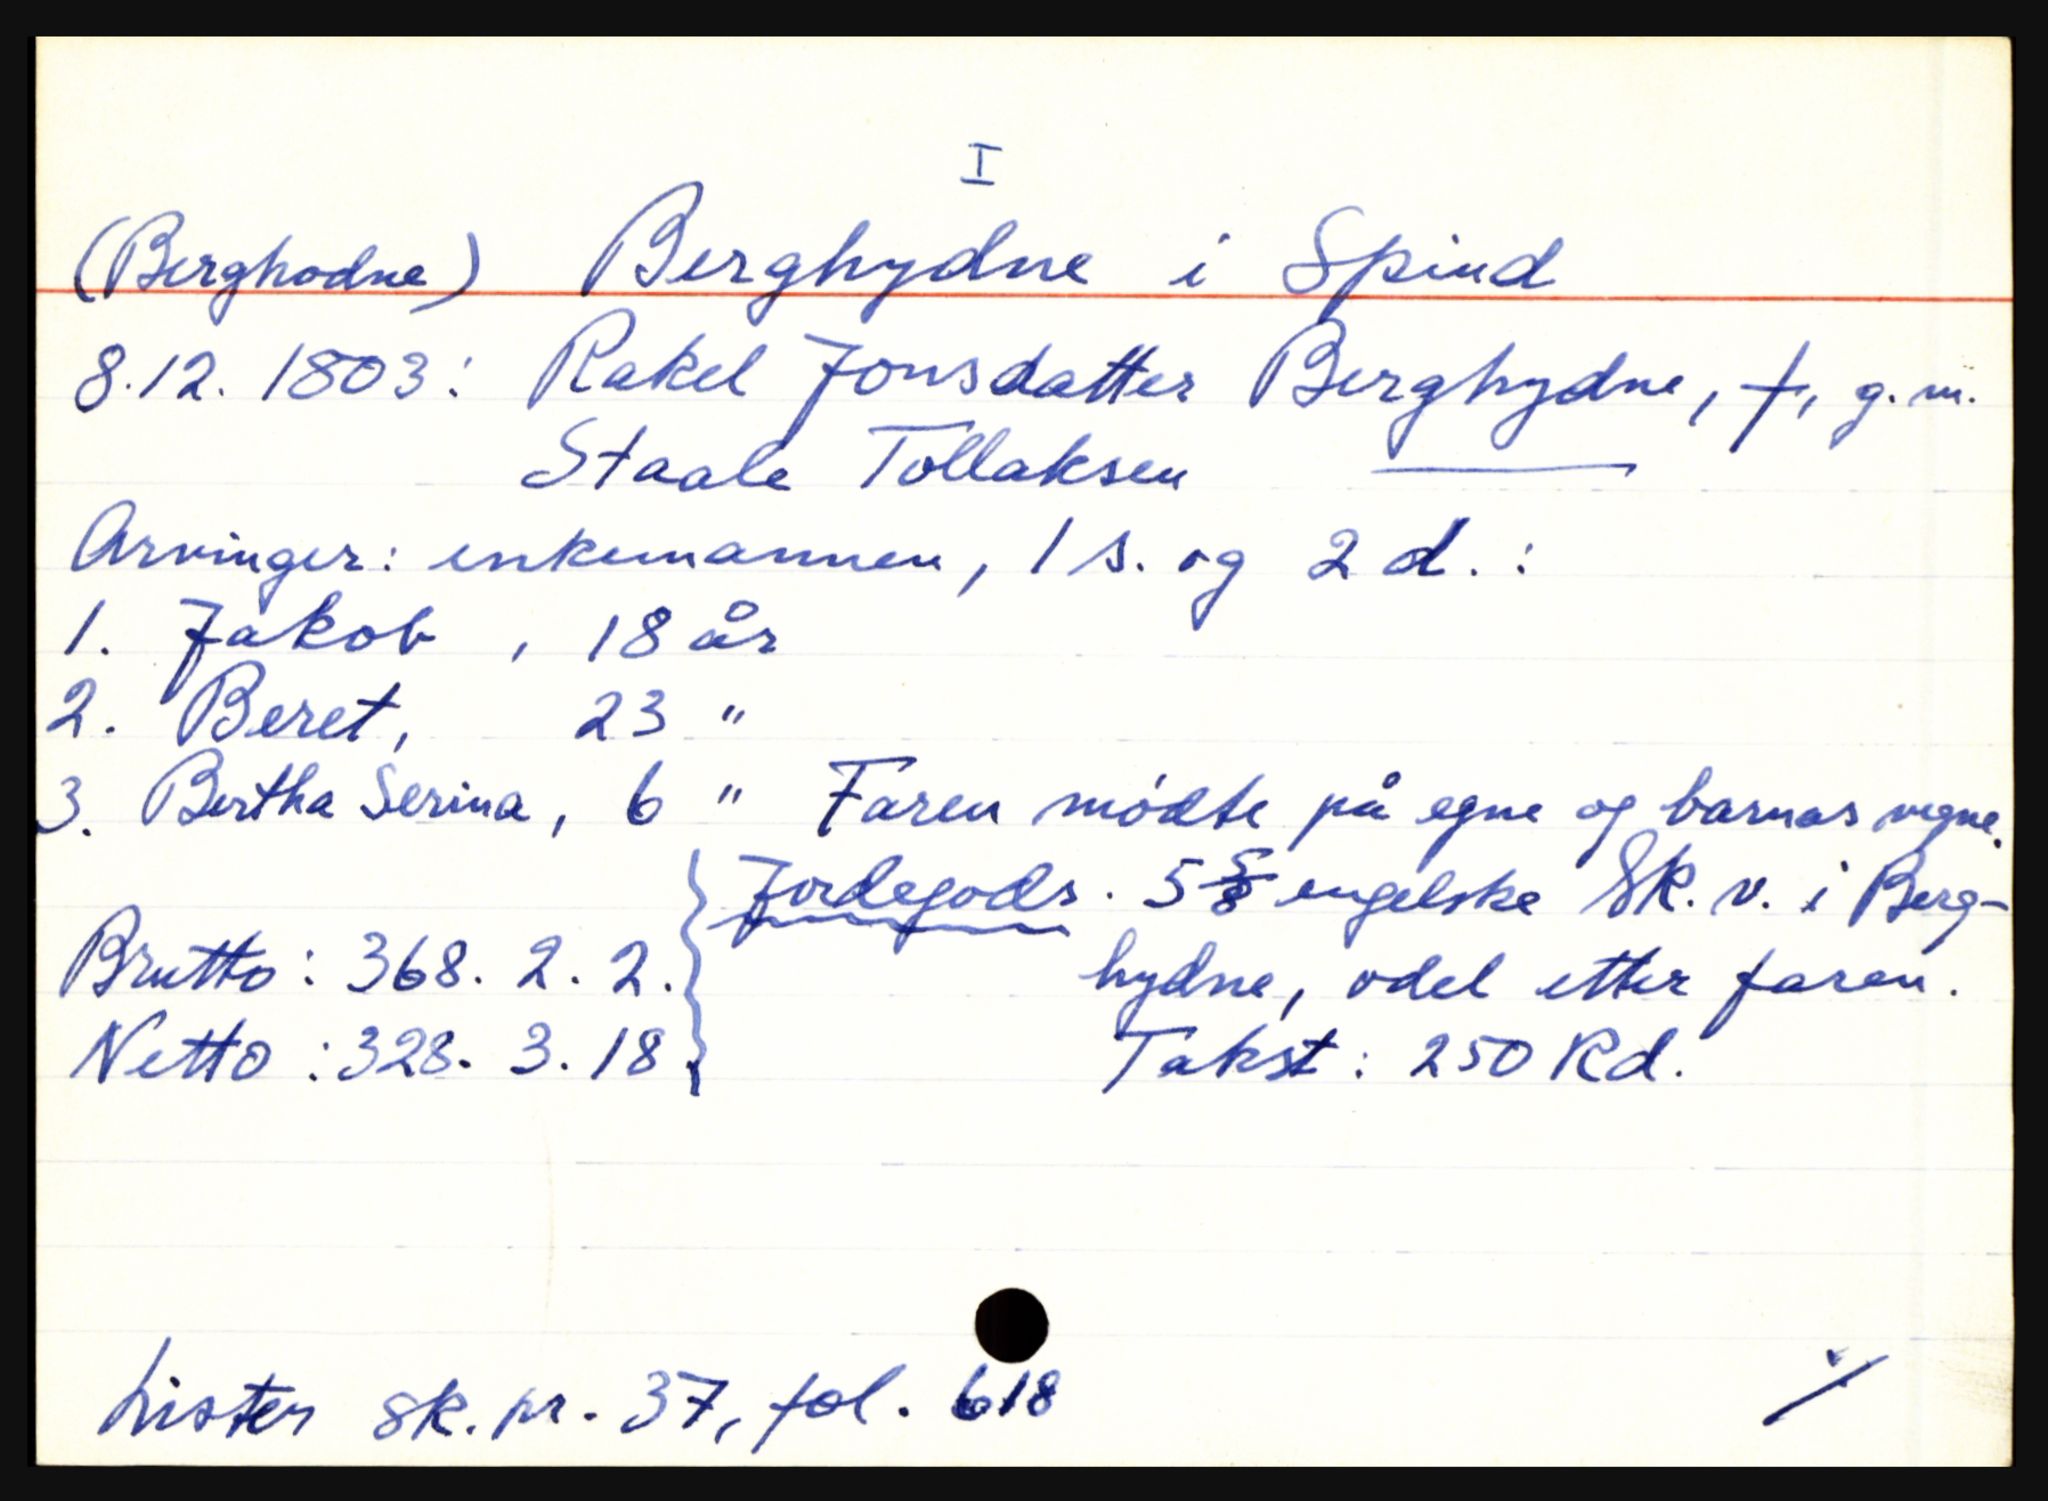 I
(Berghodne) Berghydne i Spind
8.12. 1803: Rakel Jonsdatter Berghydne, †, g. m.
Staale Tollaksen ———
Arvinger: enkemannen, 1 s. og 2 d. :
1. Jakob , 18 år
2. Beret, 23 "
3. Bertha Serina, 6 " Faren mødte på egne og barnas vegne.
Jordegods. 5 5/8 engelske Sk. v. i Berg-
Brutto: 368. 2. 2. hydne, odel etter faren.
Netto: 328. 3. 18. Takst: 250 Rd.
Lister sk. pr. 37, fol. 618